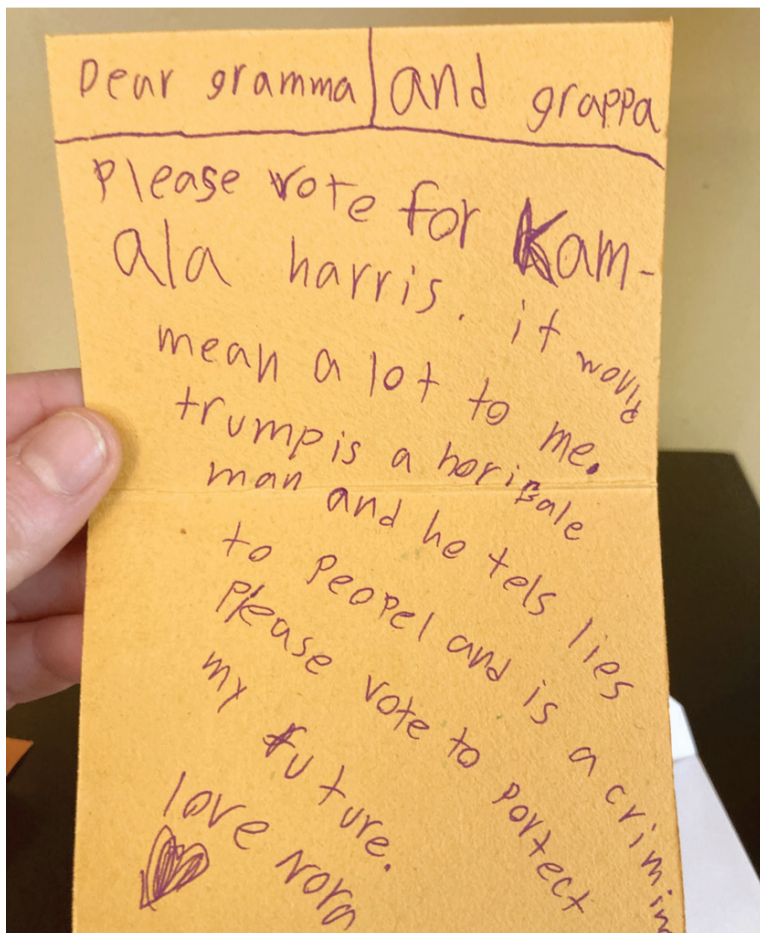 Dear gramma and grappa
Please vote for Kam-
ala harris. it would
mean a lot to me.
trump is a horibale
man and he tels lies
to peopel and is a crimin
Please vote to portect
my future.
love Nora